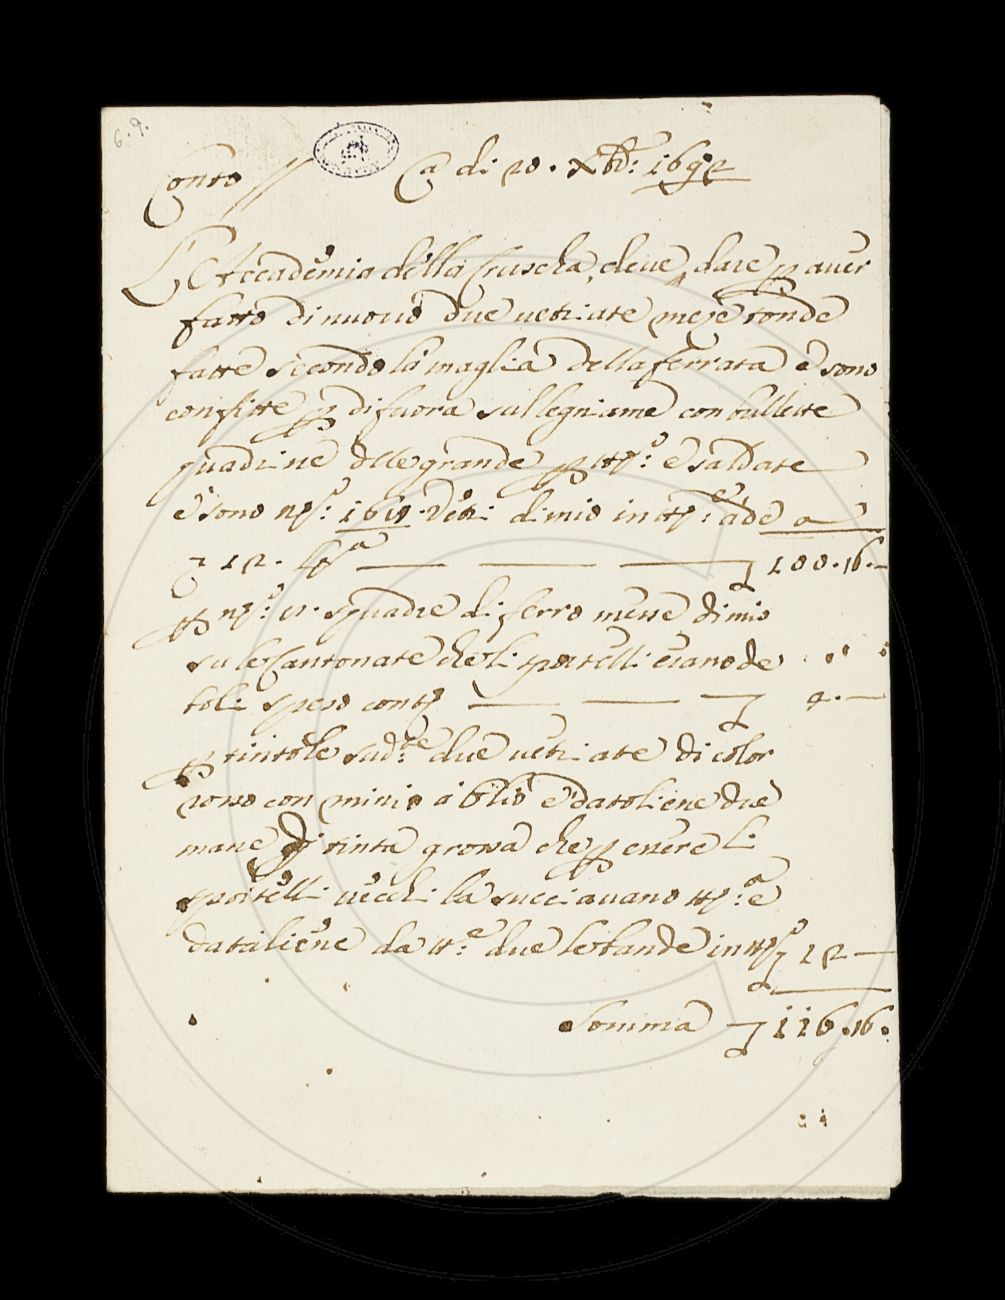 6. 9.
Conto // A di 20. Xbre: 1692
L'Accademia della Cruscha, deve, dare p aver
fatto di nuovo due vetriate meze tonde
fatte secondo la maglia della ferrata e sono
confitte p di fuora sul legniame con bullette
quadrine delle grande e saldate
e sono no: Vetri di mio in
12. 100.16.-
p no: squadre di ferro messe di mio
su le Cantonate che li sportelli erano de
toli speso
p tintole sud.te due vetriate di color
rosso con minio a olio e datoliene due
mane di tinta grossa che p enere li
sportelli vechi la succiavano e
datiliene da due le bande in 12 —
Somma 116.16.